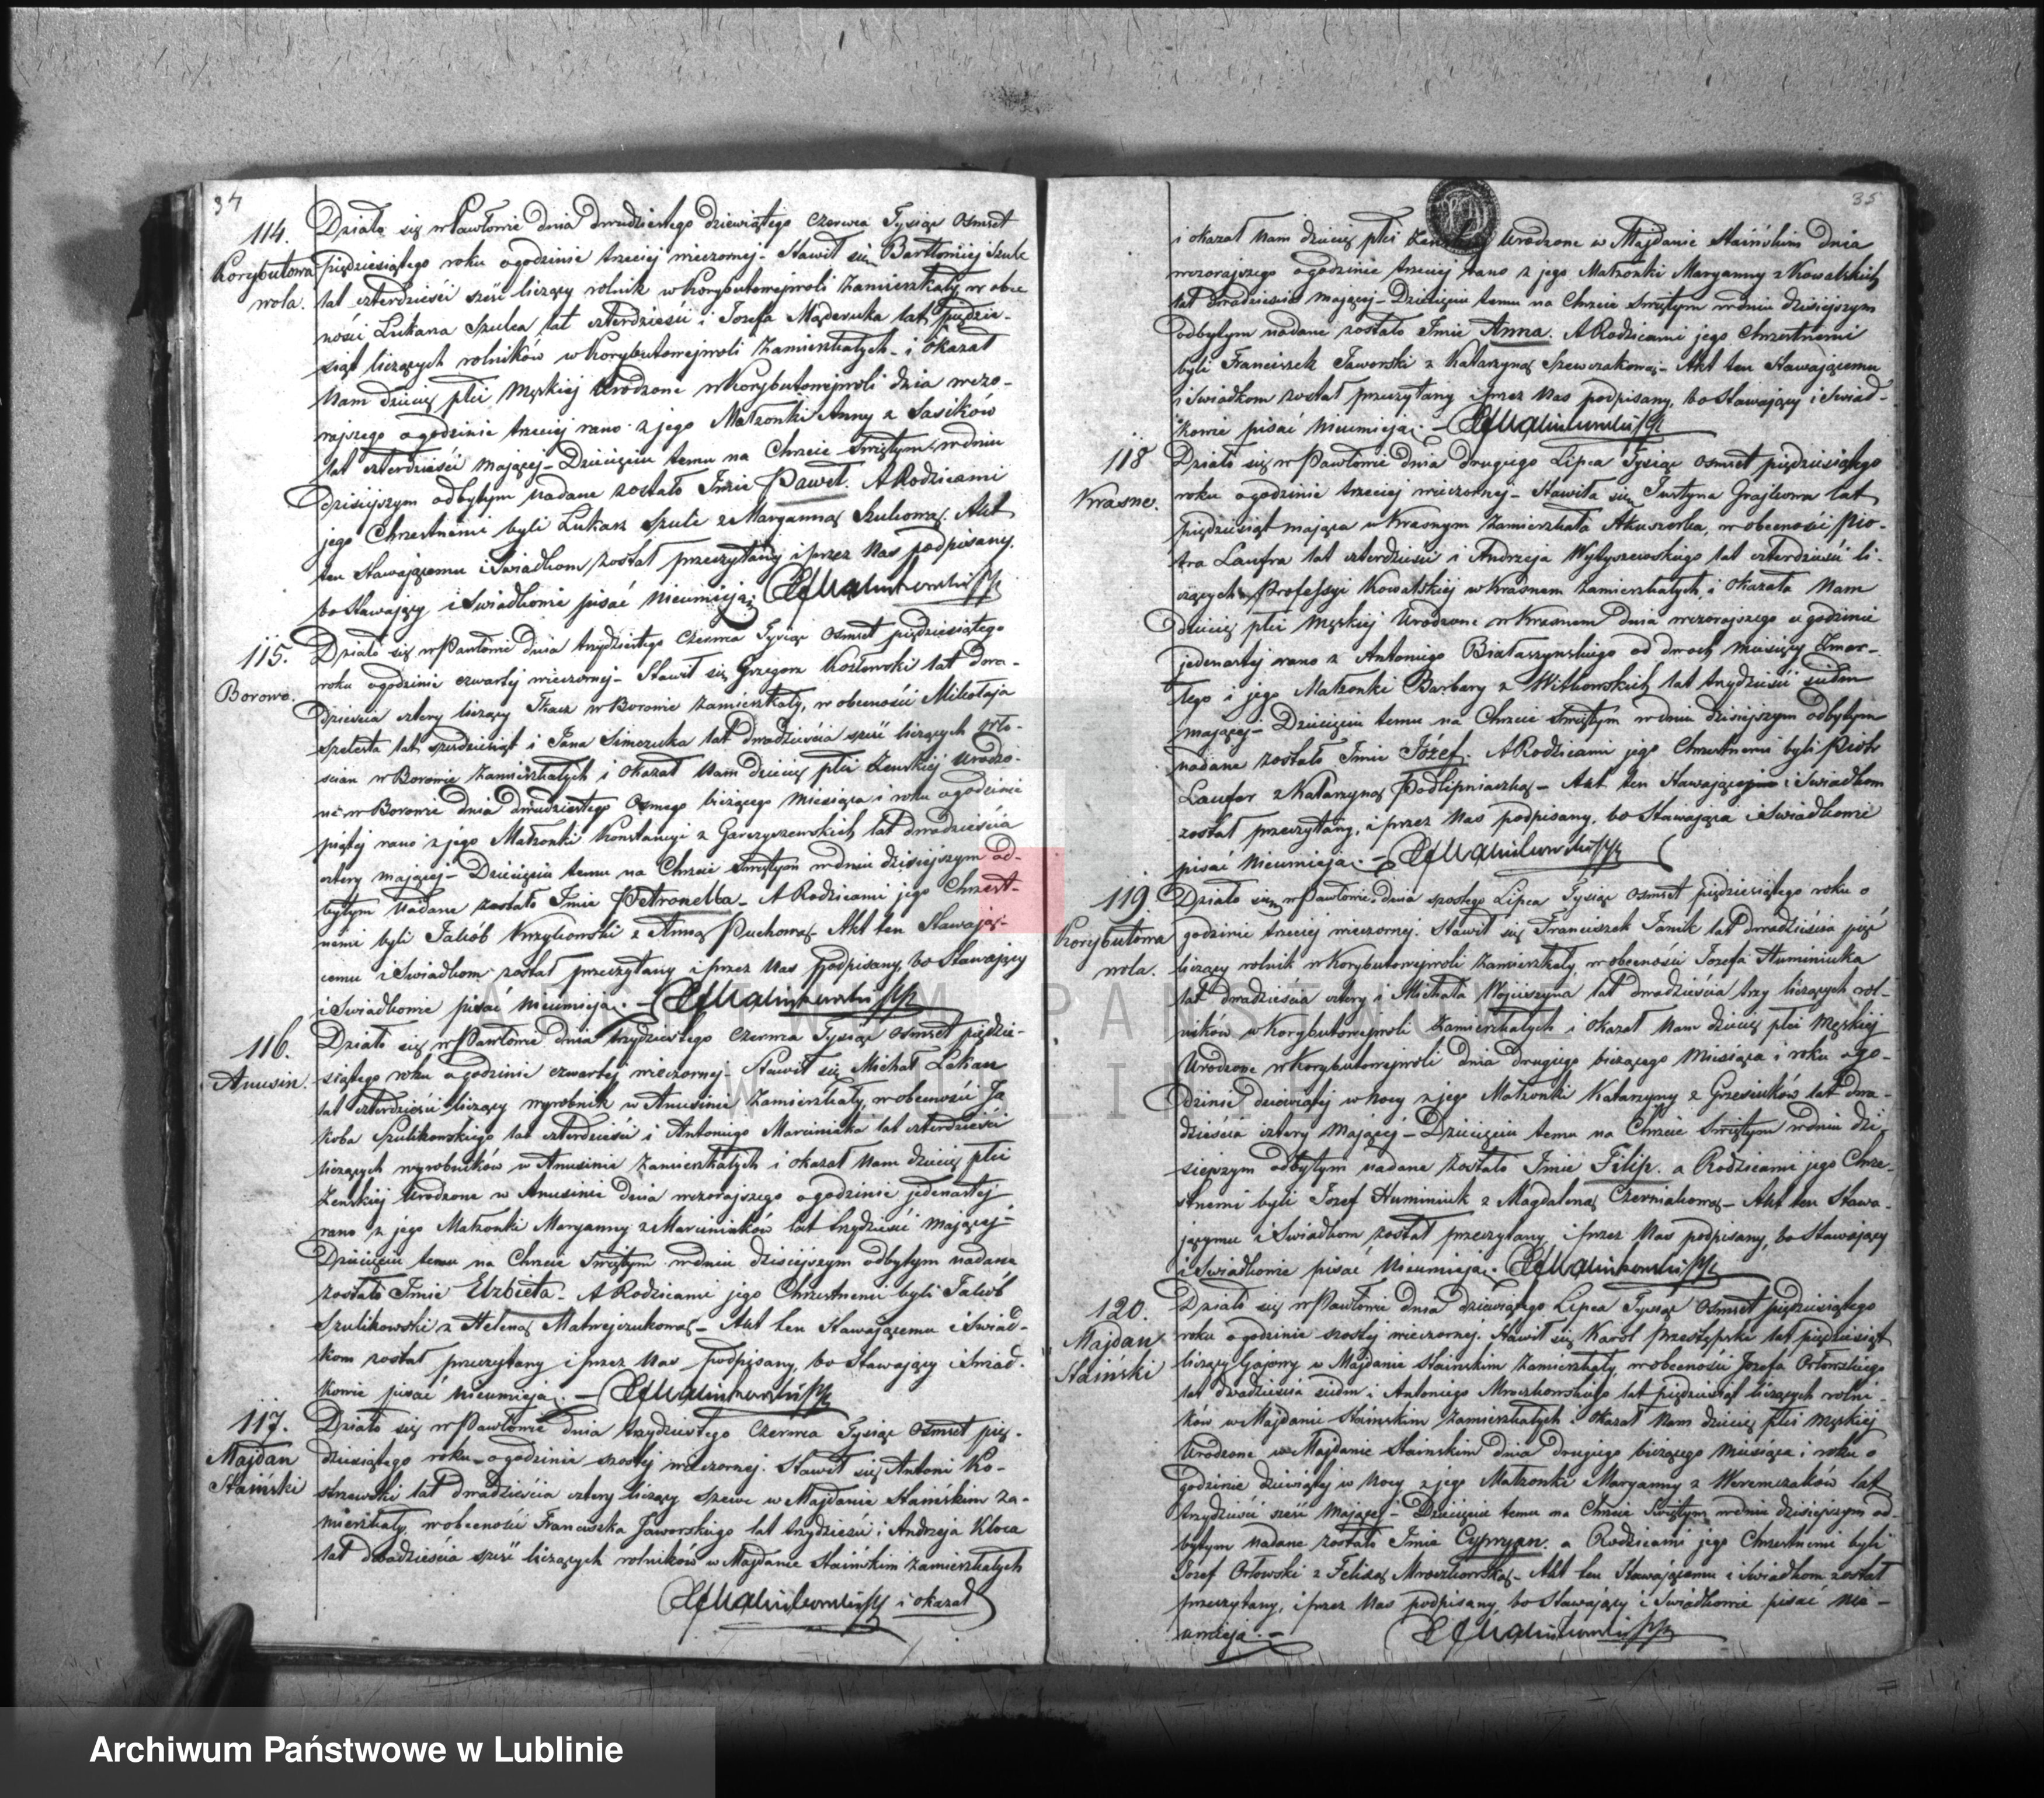 34
114.
Korybutowa
wola.
Działo się w Pawłowie dnia dwudziestego dziewiątego Czerwca Tysiąc Osmset
pięćdziesiątego roku o godzinie trzeciej wieczornej. Stawił się Bartłomiej Szulc
lat czterdzieści sześć liczący rolnik w Korybutowejwoli zamieszkały w obec
ności Lukasza Szulca lat czterdzieści i Jozefa lat pięćdzie-
siąt liczących rolników w Korybutowejwoli zamieszkałych i okazał
Nam dziecię płci Męskiej Urodzone w Korybutowejwoli dnia wczo-
rajszego o godzinie trzeciej rano z jego Małżonki Anny z Sasików
lat czterdzieści mającej – Dziecięciu temu na Chrzcie Świętym w dniu
dzisiejszym odbytym nadane zostało Imie Paweł. A Rodzicami
jego Chrzestnemi byli Lukasz Szulc z Maryanną Szulcową. Akt
ten stawającemu i Świadkom został przeczytany i przez Nas podpisany,
bo Stawający i Świadkowie pisać nieumieją.
115.
Borowo.
Działo się w Pawłowie dnia trzydziestego Czerwca Tysiąc Osmset pięćdziesiątego
roku o godzinie czwartej wieczornej – Stawił się Grzegorz Kozłowski lat dwa-
dzieścia cztery liczący Tkacz w Borowie zamieszkały, w obecności Mikołaja
lat i Jana Simczuka lat dwadzieścia sześć liczących Wło-
ścian w Borowie zamieszkałych i okazał Nam dziecię płci Żeńskiej Urodzo-
ne w Borowie dnia dwudziestego Osmego bieżącego Miesiąca i roku o godzinie
piątej rano z jego Małżonki Konstancyi z Garczyszewskich lat dwadzieścia
cztery mającej – Dziecięciu temu na Chrzcie Świętym w dniu dzisiejszym od-
bytym Nadane zostało Imie Petronella – A Rodzicami jego Chrzest-
nemi byli Jakób Krzykowski z Anną Puchową – Akt ten Stawają-
cemu i Świadkom został przeczytany i przez Nas podpisany, bo Stawający
i Świadkowie pisać nieumieją. –
116.
Anusin.
Działo się w Pawłowie dnia trzydziestego Czerwca Tysiąc Osmset pięćdzie-
siątego roku o godzinie czwartej wieczornej – Stawił się Michał
lat czterdzieści liczący wyrobnik w Anusinie zamieszkały, w obecności Ja
koba Szulikowskiego lat czterdzieści i Antoniego Marciniaka lat czterdzieści
liczących wyrobników w Anusinie zamieszkałych i okazał Nam dziecię płci
Żeńskiej Urodzone w Anusinie dnia wczorajszego o godzinie jedenastej
rano z jego Małżonki Maryanny z Marciniaków lat trzydzieści mającej –
Dziecięciu temu na Chrzcie Świętym w dniu dzisiejszym odbytym nadane
zostało Imie Elzbieta – A Rodzicami jego Chrzestnemi byli Jakób
Szulikowski z Heleną Matwejczukową – Akt ten Stawającemu i Świad-
kom został przeczytany i przez Nas podpisany, bo Stawający i Świad-
kowie pisać nieumieją. –
117.
Majdan
Staiński
Działo się w Pawłowie dnia trzydziestego Czerwca Tysiąc Osmset pięć-
dziesiątego roku o godzinie szostej wieczornej. Stawił się Antoni Ko-
lat dwadzieścia cztery liczący szewc w Majdanie Staińskim za-
mieszkały, w obecności Franciszka Jaworskiego lat trzydzieści i Andrzeja Kloca
lat dwadzieścia sześć liczących rolników w Majdanie Staińskim zamieszkałych
i okazał
35
i okazał Nam dziecię płci Żeńskiej Urodzone w Majdanie Staińskim dnia
wczorajszego o godzinie trzeciej rano z jego Małżonki Maryanny z Kowalskich
lat dwadzieścia mającej – Dziecięciu temu na Chrzcie Świętym w dniu dzisiejszym
odbytym nadane zostało Imie Anna. A Rodzicami jego Chrzestnemi
byli Franciszek Jaworski z Katarzyną Szewczakową – Akt ten Stawającemu
i Świadkom został przeczytany i przez Nas podpisany, bo Stawający i Świad-
kowie pisać nieumieją. –
118
Krasne.
Działo się w Pawłowie dnia drugiego Lipca Tysiąc Osmset pięćdziesiątego
roku o godzinie trzeciej wieczornej – Stawiła się Justyna lat
pięćdziesiąt mająca w Krasnym zamieszkała Akuszerka, w obecności Pio-
tra Laufra lat czterdzieści i Andrzeja Wytyszewskiego lat czterdzieści li-
czących Professyi Kowalskiej w Krasnem zamieszkałych, i okazała Nam
dziecię płci Męskiej Urodzone w Krasnem dnia wczorajszego o godzinie
jedenastej rano z Antoniego Białaszynskiego od dwoch Miesięcy Zmar-
łego i jego Małżonki Barbary z Witkowskich lat trzydzieści siedm
mającej – Dziecięciu temu na Chrzcie Świętym w dniu dzisiejszym odbytym
nadane zostało Imie Józef. A Rodzicami jego Chrzestnemi byli Piotr
Laufer z Katarzyną Podlipniaczką – Akt ten Stawającej i Świadkom
został przeczytany, i przez Nas podpisany, bo Stawająca i Świadkowie
pisać nieumieją. –
119.
Korybutowa
wola.
Działo się w Pawłowie dnia szostego Lipca Tysiąc Osmset pięćdziesiątego roku o
godzinie trzeciej wieczornej. Stawił się Franciszek Janik lat dwadzieścia pięć
liczący rolnik w Korybutowejwoli zamieszkały, w obecności Jozefa Huminiuka
lat dwadzieścia cztery i Michała Wojciszyna lat dwadzieścia trzy liczących rol-
ników w Korybutowejwoli zamieszkałych i okazał Nam dziecię płci Męskiej
Urodzone w Korybutowejwoli dnia drugiego bieżącego Miesiąca i roku o go-
dzinie dziewiątej w Nocy z jego Małżonki Katarzyny z Grzesiuków lat dwa-
dzieścia cztery Mającej – Dziecięciu temu na Chrzcie Świętym w dniu dzi-
siejszym odbytym nadane zostało Imie Filip. a Rodzicami jego Chrze-
stnemi byli Jozef Huminiuk z Magdaleną Czerniakową – Akt ten Stawa-
jącymu i Świadkom został przeczytany, i przez Nas podpisany, bo Stawający
i Świadkowie pisać nieumieją.
120.
Majdan
Staiński
Działo się w Pawłowie dnia dziewiątego Lipca Tysiąc Osmset pięćdziesiątego
roku o godzinie szostej wieczornej. Stawił się Karol lat pięćdziesiąt
liczący Gajowy w Majdanie Stainskim zamieszkały, w obecności Jozefa Orłowskiego
lat dwadzieścia siedm i Antoniego Mroczkowskiego lat pięćdziesiąt liczących rolni-
ków w Majdanie Stainskim zamieszkałych i okazał Nam dziecię płci Męskiej
Urodzone w Majdanie Stainskim dnia drugiego bieżącego Miesiąca i roku o
godzinie dziewiątej w Nocy z jego Małżonki Maryanny z Weremczaków lat
trzydzieści sześć Mającej – Dziecięciu temu na Chrzcie Świętym w dniu dzisiejszym od-
bytym nadane zostało Imie Cypryan. a Rodzicami jego Chrzestnemi byli
Józef Orłowski z Felixą Mroczkowską – Akt ten Stawającemu i Świadkom został
przeczytany, i przez Nas podpisany, bo Stawający i Świadkowie pisać nie-
umieją. –
ARCHIWUM PAŃSTWOWE
W LUBLINIE
Archiwum Państwowe w Lublinie